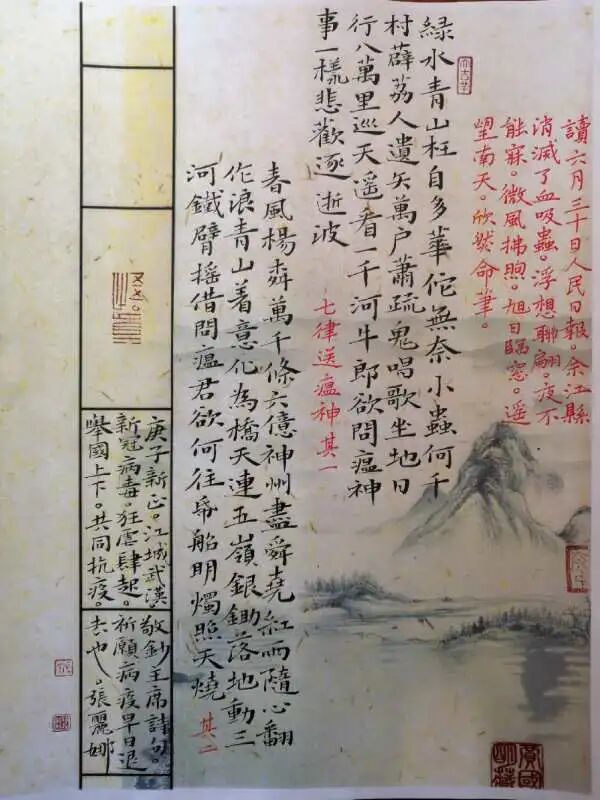 讀六月三十日人民日報。余江縣
消滅了血吸蟲。浮想聯翩。夜不
能寐。微風拂煦。旭日臨窗。遥
望南天。欣然命筆。
綠水青山枉自多華佗無奈小蟲何千
村薜荔人遺矢萬户蕭疏鬼唱歌坐地日
行八萬里巡天遥看一千河牛郎欲問瘟神
事一樣悲歡逐逝波
七律送瘟神 其一
春風楊桺萬千條六億神州盡舜堯紅雨隨心翻
作浪青山着意化為橋天連五嶺銀鋤落地動三
河鐵臂摇借問瘟君欲何往帋船明燭照天燒
其二
庚子新正。江城武漢
新冠病毒。狂虐肆起。
舉國上下。共同抗疫。
敬鈔主席詩句。
祈願病疫早日退
去也。張麗娜